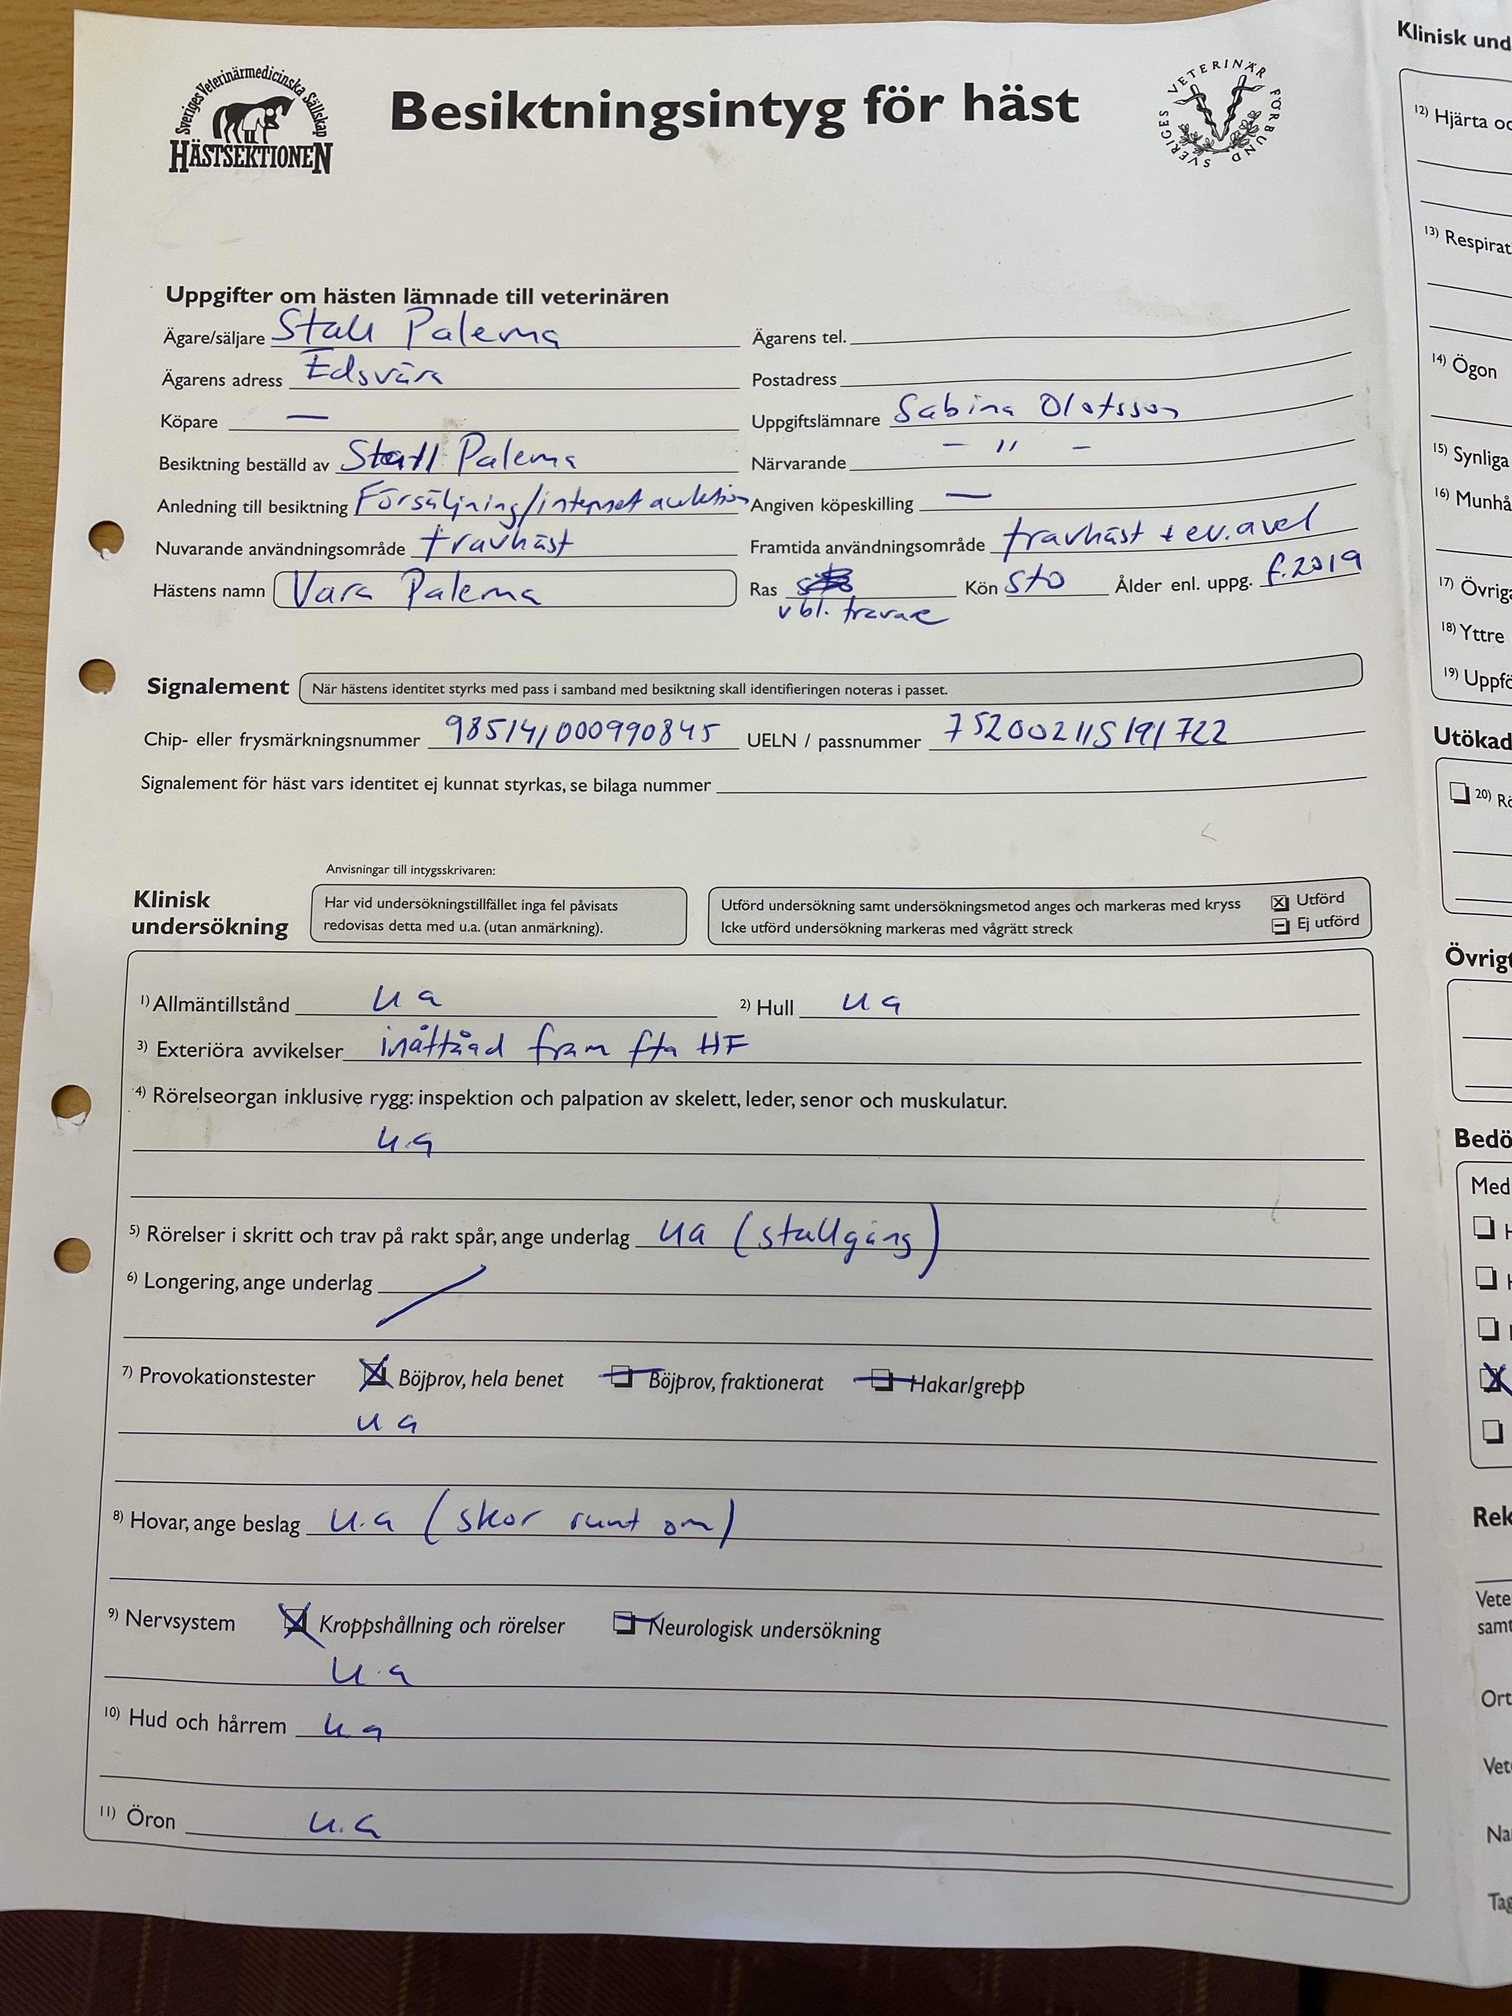 Sveriges Veterinärmedicinska Sällskap
HÄSTSEKTIONEN
Besiktningsintyg för häst
SVERIGES VETERINÄR FÖRBUND
Uppgifter om hästen lämnade till veterinären
Ägare/säljare Stall Palema Ägarens tel.
Ägarens adress Edsvära Postadress
Köpare — Uppgiftslämnare Sabina Olofsson
Besiktning beställd av Stall Palema Närvarande - " -
Anledning till besiktning Försäljning/internet auktion Angiven köpeskilling —
Nuvarande användningsområde travhäst Framtida användningsområde travhäst + ev. avel
Hästens namn Vara Palema Ras Kön sto Ålder enl. uppg. f. 2019
vbl. travare
Signalement När hästens identitet styrks med pass i samband med besiktning skall identifieringen noteras i passet.
Chip- eller frysmärkningsnummer 985141000990845 UELN / passnummer 752002115191722
Signalement för häst vars identitet ej kunnat styrkas, se bilaga nummer
Anvisningar till intygsskrivaren:
Klinisk undersökning
Har vid undersökningstillfället inga fel påvisats
redovisas detta med u.a. (utan anmärkning).
Utförd undersökning samt undersökningsmetod anges och markeras med kryss Utförd
Icke utförd undersökning markeras med vågrätt streck Ej utförd
1) Allmäntillstånd u a 2) Hull u a
3) Exteriöra avvikelser inåttåad fram ffa HF
4) Rörelseorgan inklusive rygg: inspektion och palpation av skelett, leder, senor och muskulatur.
u.a
5) Rörelser i skritt och trav på rakt spår, ange underlag ua (stallgång)
6) Longering, ange underlag
7) Provokationstester Böjprov, hela benet Böjprov, fraktionerat Hakar/grepp
u a
8) Hovar, ange beslag u.a (skor runt om)
9) Nervsystem Kroppshållning och rörelser Neurologisk undersökning
u.a
10) Hud och hårrem u.a
11) Öron u.a
Klinisk und
12) Hjärta oc
13) Respirat
14) Ögon
15) Synliga
16) Munhå
17) Övriga
18) Yttre
19) Uppfö
Utökad
20) Rö
Övrigt
Bedö
Med
Rek
Vete
samt
Ort
Vet
Na
Tag